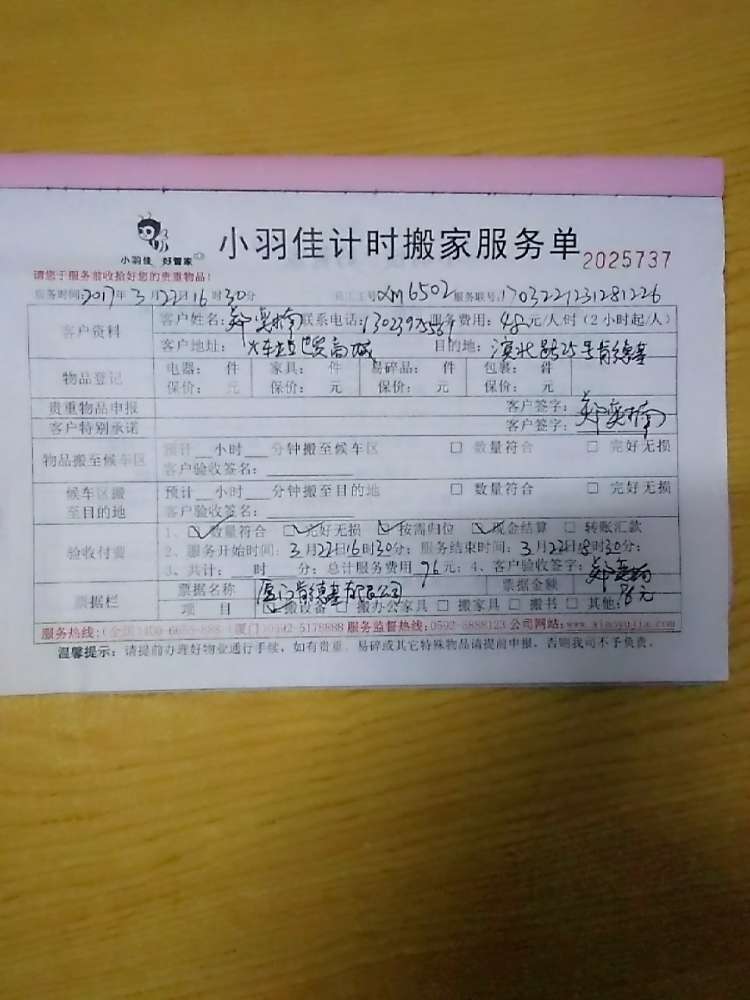 小羽佳 好管家
小羽佳计时搬家服务单 2025737
请您于服务前收拾好您的贵重物品!
服务时间:2017年3月22日16时30分 员工工号XM6502 服务联号:1703221231281226
客户资料 客户姓名: 联系电话: 服务费用:48元/人时(2小时起/人)
客户地址:火车站 商城 目的地:滨北路25号肯德基
物品登记 电器: 件 家具: 件 易碎品: 件 包裹: 件
保价: 元 保价: 元 保价: 元 保价: 元
贵重物品申报 客户签字:
客户特别承诺 客户签字:
物品搬至候车区 预计__小时__分钟搬至候车区 □ 数量符合 □ 完好无损
客户验收签名:
候车区搬至目的地 预计__小时__分钟搬至目的地 □ 数量符合 □ 完好无损
客户验收签名:
验收付费 1、☑数量符合 ☑完好无损 ☑按需归位 ☑现金结算 □ 转账汇款
2、服务开始时间:3月22日16时30分;服务结束时间:3月22日18时30分;
3、共计: 时 分;总计服务费用 96元;4、客户验收签字:
票据栏 票据名称 厦门肯德基有限公司 票据金额 96元
项 目 ☑搬设备 □ 搬办公家具 □ 搬家具 □ 搬书 □ 其他:
服务热线:(全国)400-6655-888 (厦门)0592-5178888 服务监督热线:0592-5888123 公司网站:www.xiaoyujia.com
温馨提示:请提前办理好物业通行手续,如有贵重、易碎或其它特殊物品请提前申报,否则我司不予负责。